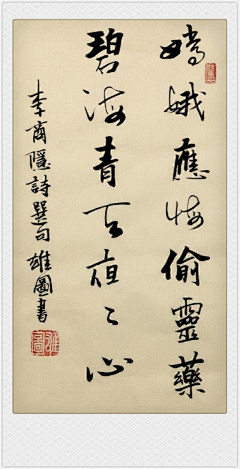 嫦娥應悔偷靈藥
碧海青天夜〻心
李商隱詩選句雄圖書